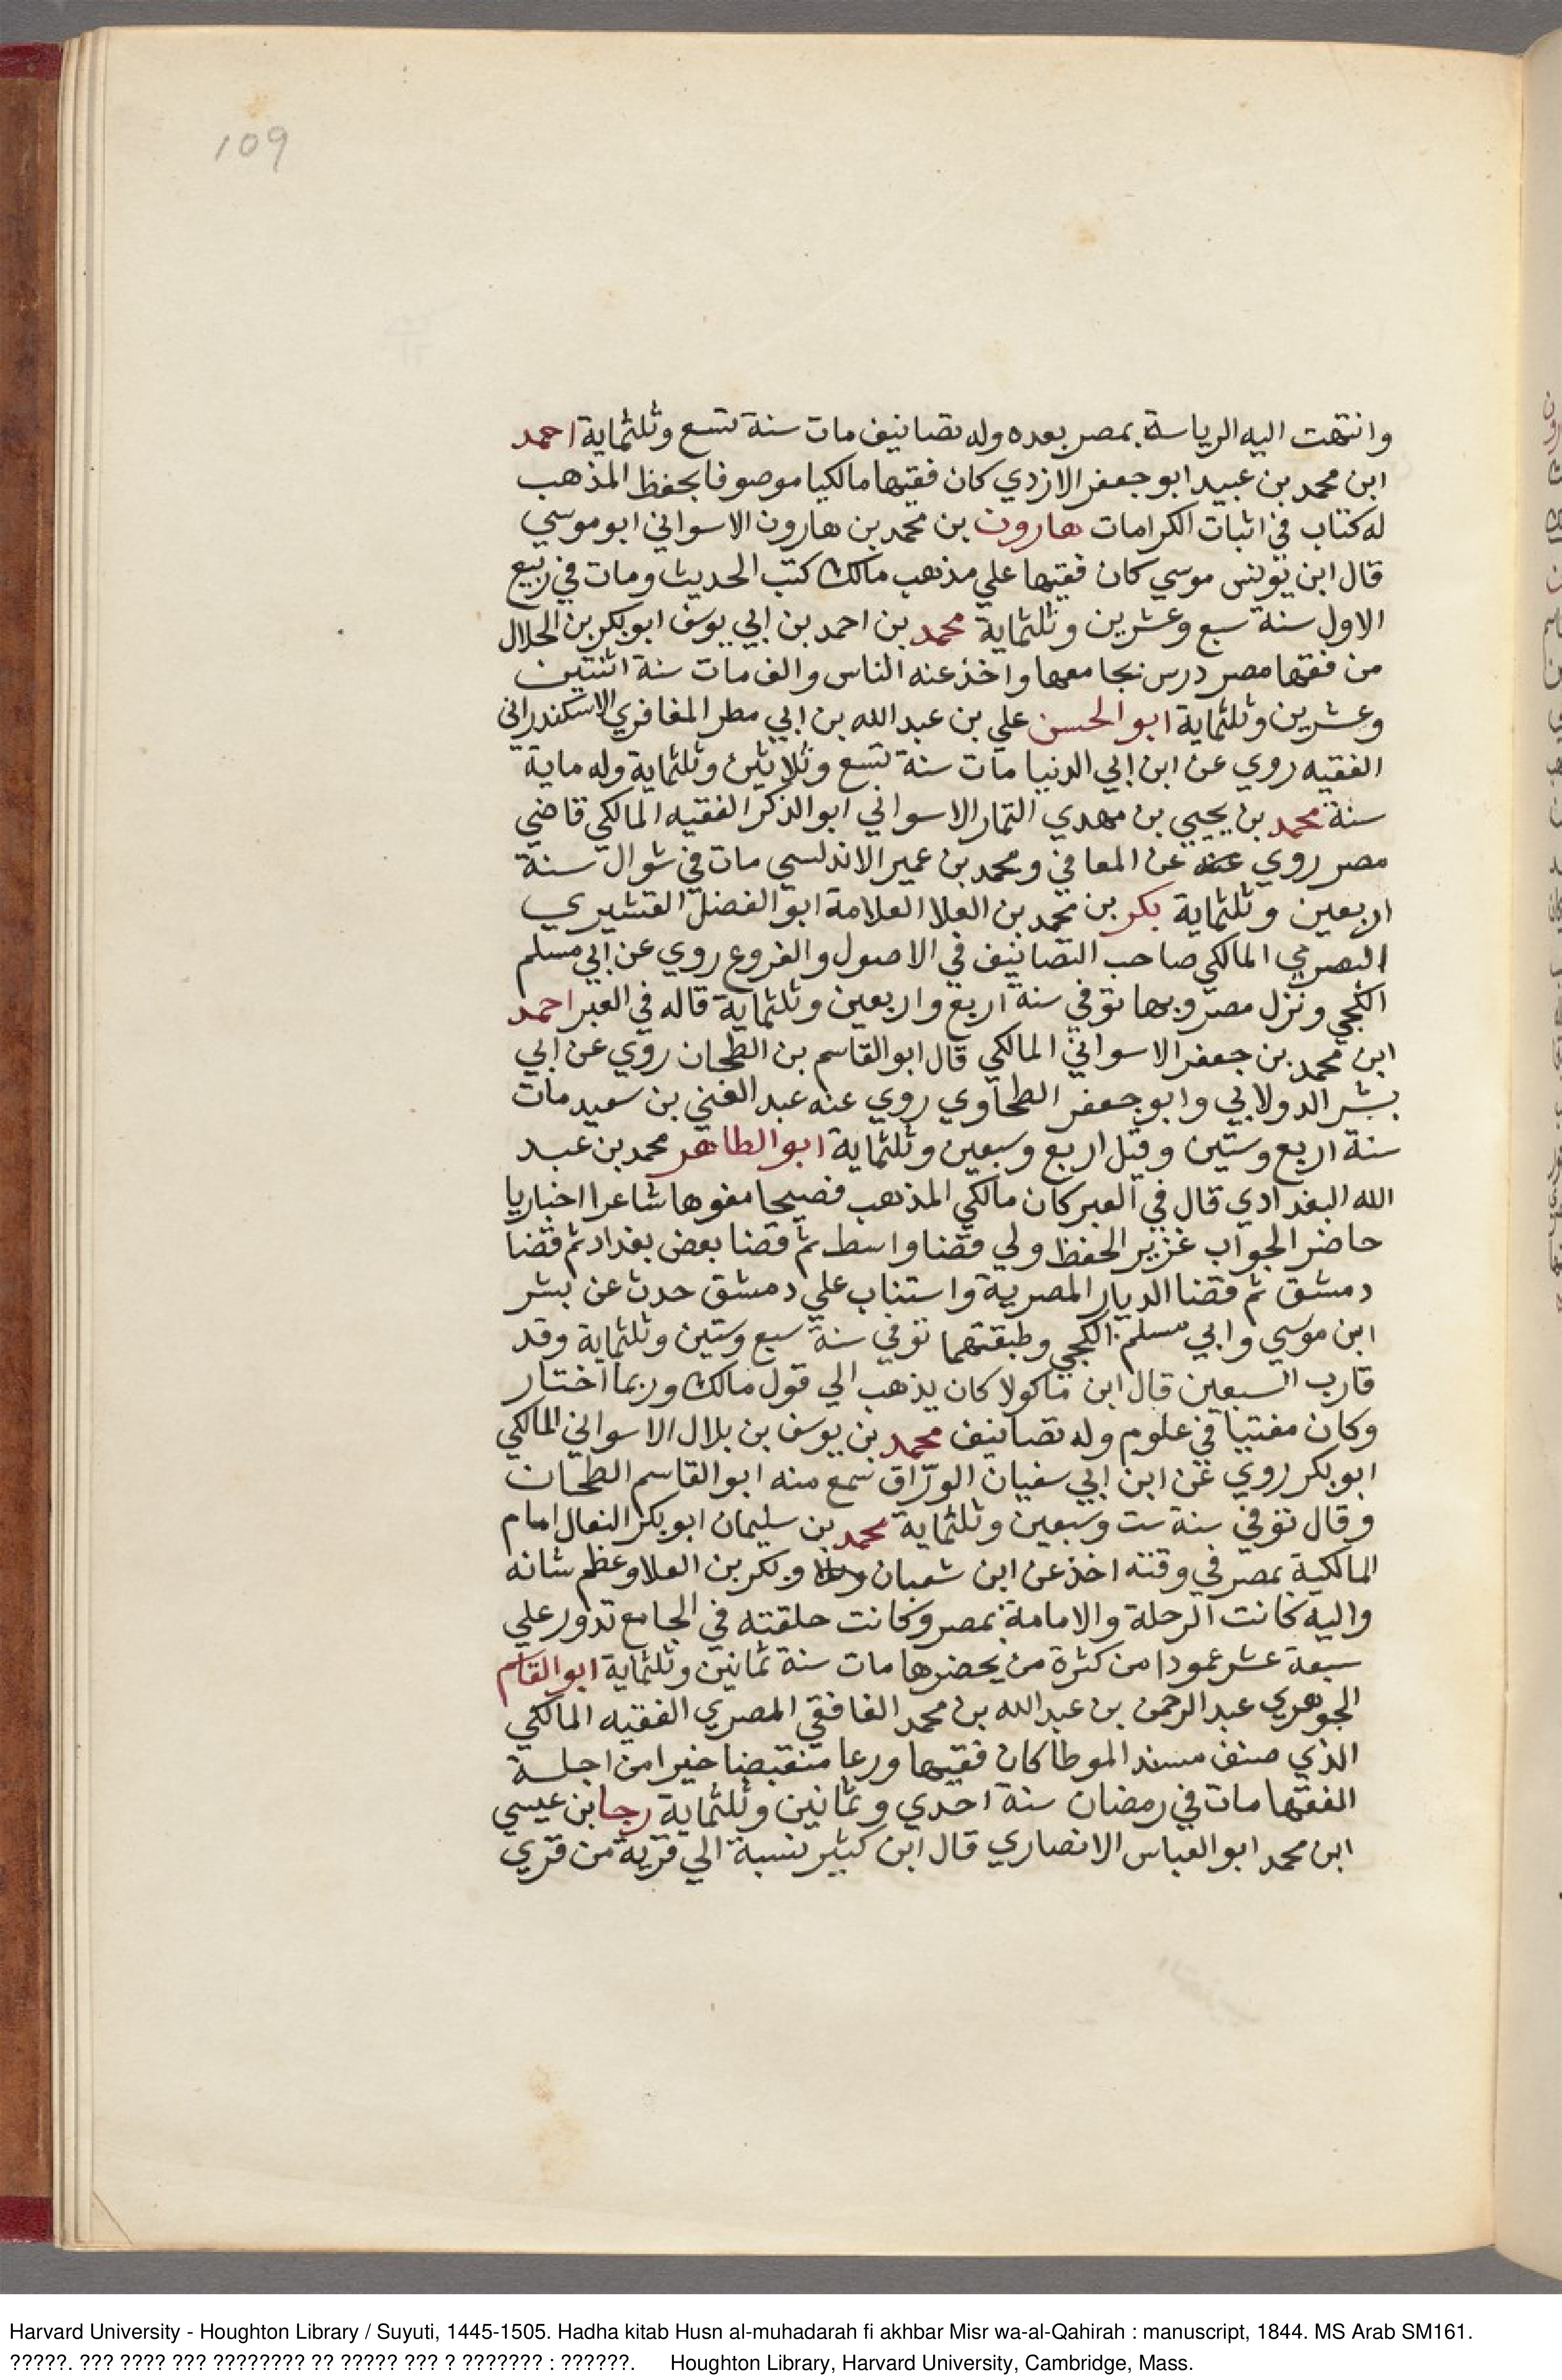 109
وانتهت اليه الرياسة بمصر بعده وله تصانيف مات سنة تسع وثلثماية احمد
ابن محمد بن عبيد ابو جعفر الازدي كان فقيها مالكيا موصوفا بحفظ المذهب
له كتاب في اثبات الكرامات هارون بن محمد بن هارون الاسواني ابو موسي
قال ابن يونس موسي كان فقيها علي مذهب مالك كتب الحديث ومات في ربيع
الاول سنة سبع وعشرين وثلثماية محمد بن احمد بن ابي يوسف ابو بكر بن الخلال
من فقها مصر درس بجامعها واخذ عنه الناس والف مات سنة اثنتين
وعشرين وثلثماية ابو الحسن علي بن عبد الله بن ابي مطر المغافري الاسكندراني
الفقيه روي عن ابن ابي الدنيا مات سنة تسع وثلاثين وثلثماية وله ماية
سنة محمد بن يحيي بن مهدي التمار الاسواني ابو الذكر الفقيه المالكي قاضي
مصر روي عن المعافي ومحمد بن عمير الاندلسي مات في شوال سنة
اربعين وثلثماية بكر بن محمد بن العلا العلامة ابو الفضل القشيري
البصري المالكي صاحب التصانيف في الاصول والفروع روي عن ابي مسلم
الكجي ونزل مصر وبها توفي سنة اربع واربعين وثلثماية قاله في العبر احمد
ابن محمد بن جعفر الاسواني المالكي قال ابو القاسم بن الطحان روي عن ابي
بشر الدولابي وابو جعفر الطحاوي روي عنه عبد الغني بن سعيد مات
سنة اربع وستين وقيل اربع وسبعين وثلثماية ابو الطاهر محمد بن عبد
الله البغدادي قال في العبر كان مالكي المذهب فصيحا مفوها شاعرا اخباريا
حاضر الجواب غزير الحفظ ولي قضا واسط ثم قضا بعض بغداد ثم قضا
دمشق ثم قضا الديار المصرية واستناب علي دمشق حدث عن بشر
ابن موسي وابي مسلم الكجي وطبقتهما توفي سنة سبع وستين وثلثماية وقد
قارب التسعين قال ابن ماكولا كان يذهب الي قول مالك وربما اختار
وكان مفتيا في علوم وله تصانيف محمد بن يوسف بن بلال الاسواني المالكي
ابو بكر روي عن ابن ابي سفيان الورّاق سمع منه ابو القاسم الطحان
وقال توفي سنة ست وسبعين وثلثماية محمد بن سليمان ابو بكر النعال امام
المالكية بمصر في وقته اخذ عن ابن شعبان وبكر بن العلا وعظم شانه
واليه كانت الرحلة والامامة بمصر وكانت حلقته في الجامع تدور علي
سبعة عشر عمودا من كثرة من يحضرها مات سنة ثمانين وثلثماية ابو القاسم
الجوهري عبد الرحمن بن عبد الله بن محمد الغافقي المصري الفقيه المالكي
الذي صنف مسند الموطا كان فقيها ورعا متقبضا خيرا من اجلة
الفقها مات في رمضان سنة احدي وثمانين وثلثماية رجا بن عيسي
ابن محمد ابو العباس الانصاري قال ابن كثير نسبة الي قرية من قري
Harvard University - Houghton Library / Suyuti, 1445-1505. Hadha kitab Husn al-muhadarah fi akhbar Misr wa-al-Qahirah : manuscript, 1844. MS Arab SM161.
?????. ??? ???? ??? ???????? ?? ????? ??? ? ??????? : ??????. Houghton Library, Harvard University, Cambridge, Mass.